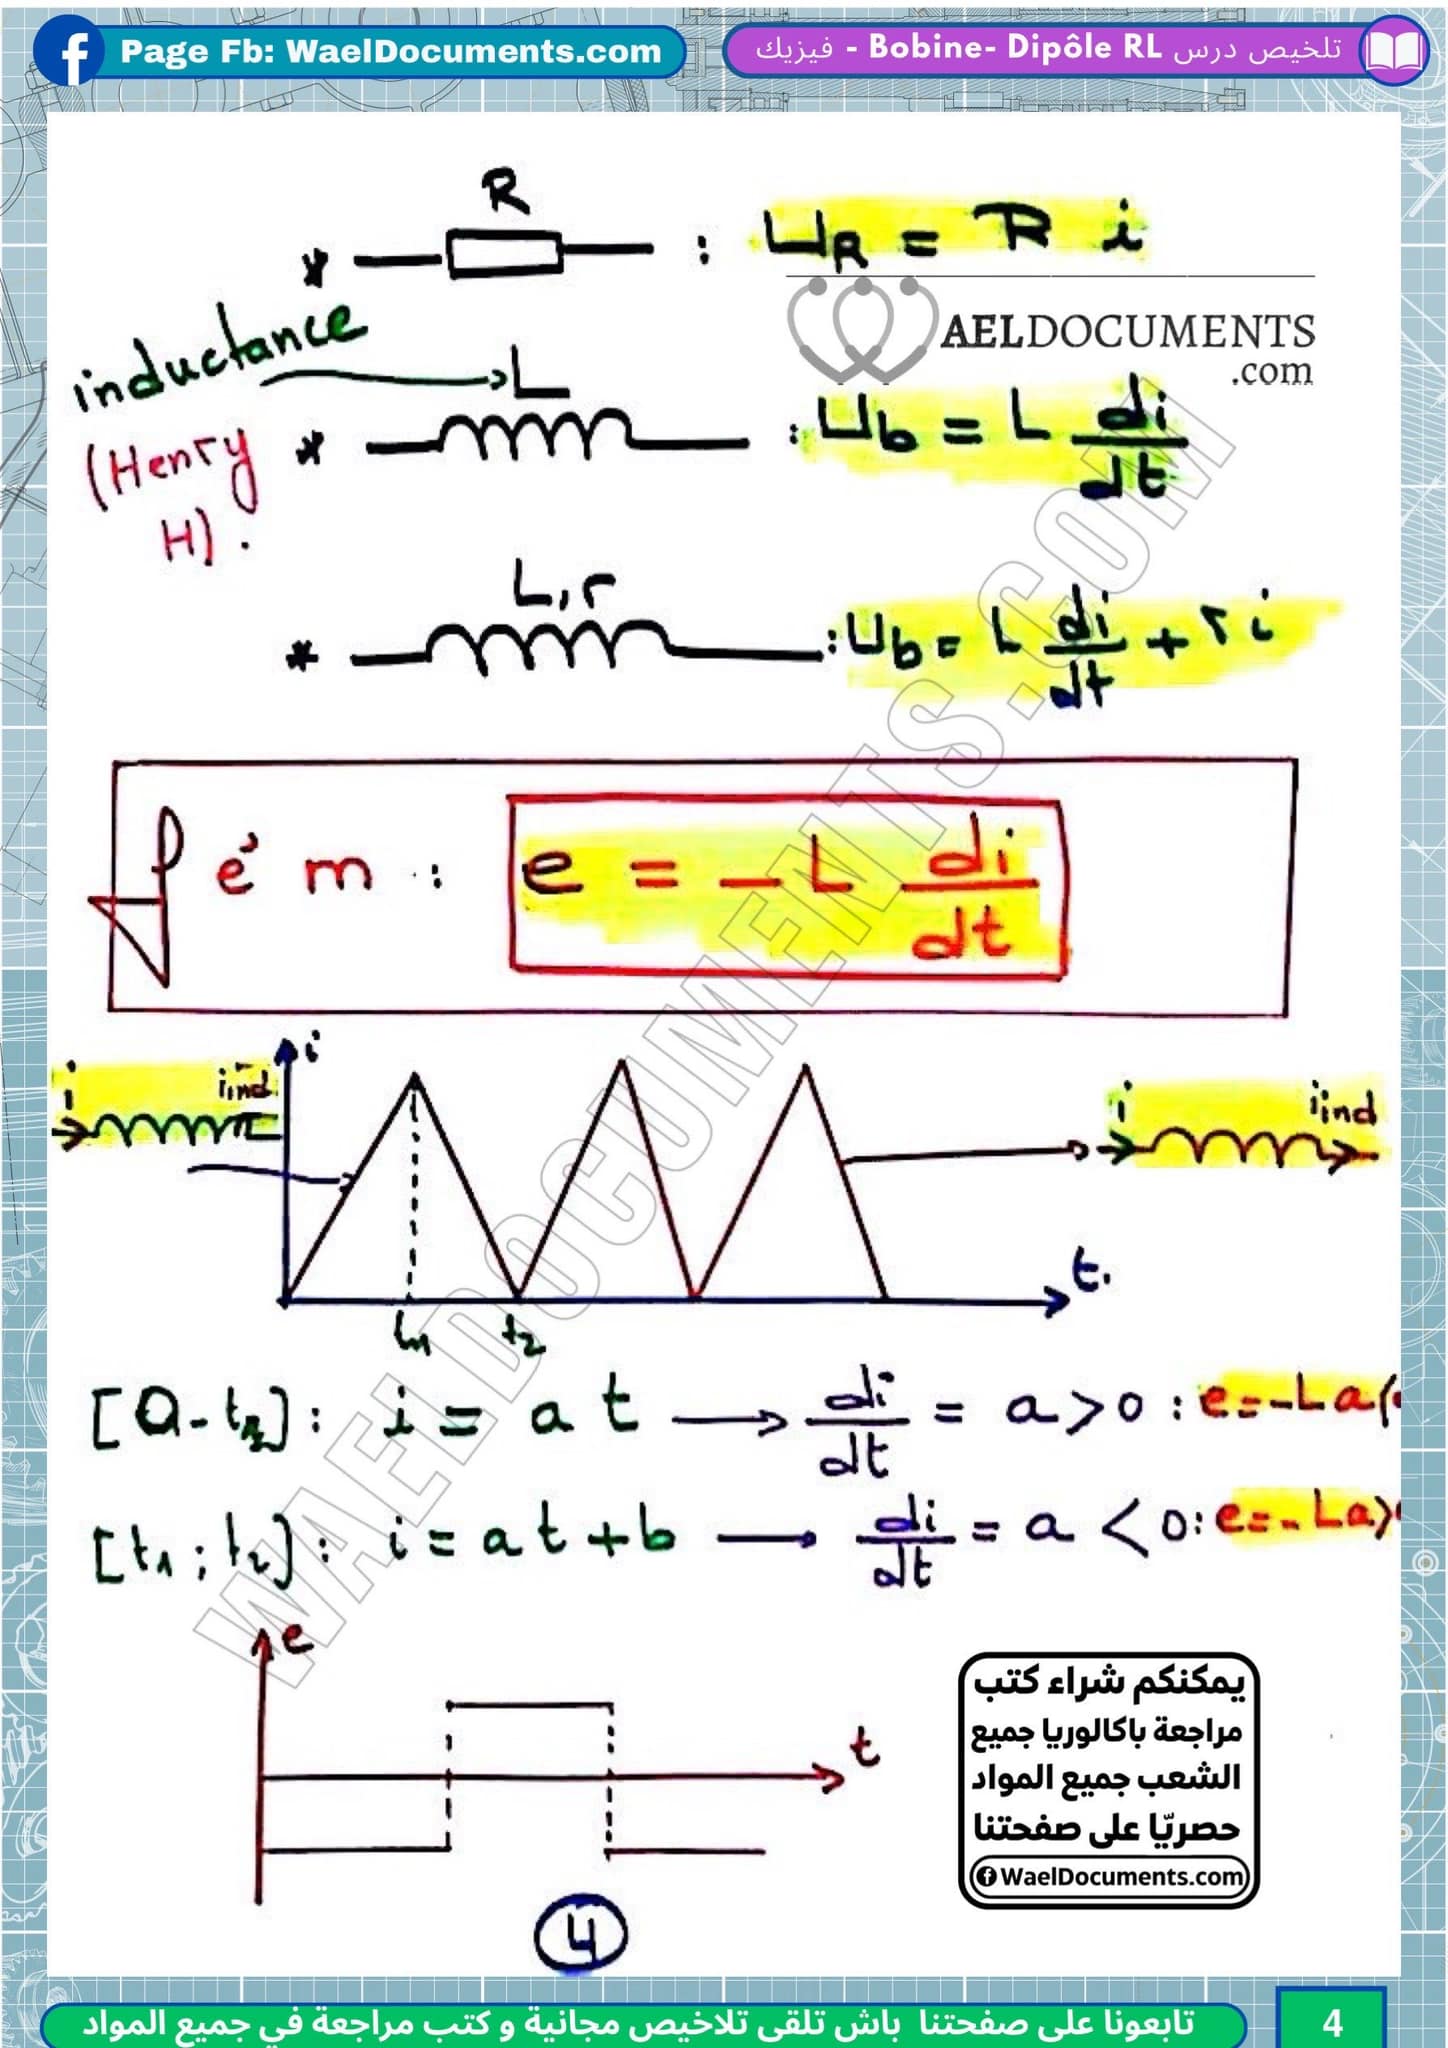 Page Fb: WaelDocuments.com
تلخيص درس Bobine- Dipôle RL - فيزيك
R
* : UR = R i
AELDOCUMENTS
.com
inductance
L
(Henry
H).
* : Ub = L di/dt
L,r
* : Ub = L di/dt + r i
f é m : e = -L di/dt
i
i iind
i iind
t.
t1 t2
[0 - t1] : i = a t → di/dt = a > 0 : e = -La
[t1 ; t2] : i = at + b → di/dt = a < 0 : e = -La >
e
t
يمكنكم شراء كتب
مراجعة باكالوريا جميع
الشعب جميع المواد
حصريّا على صفحتنا
WaelDocuments.com
4
WAELDOCUMENTS.COM
تابعونا على صفحتنا باش تلقى تلاخيص مجانية و كتب مراجعة في جميع المواد
4